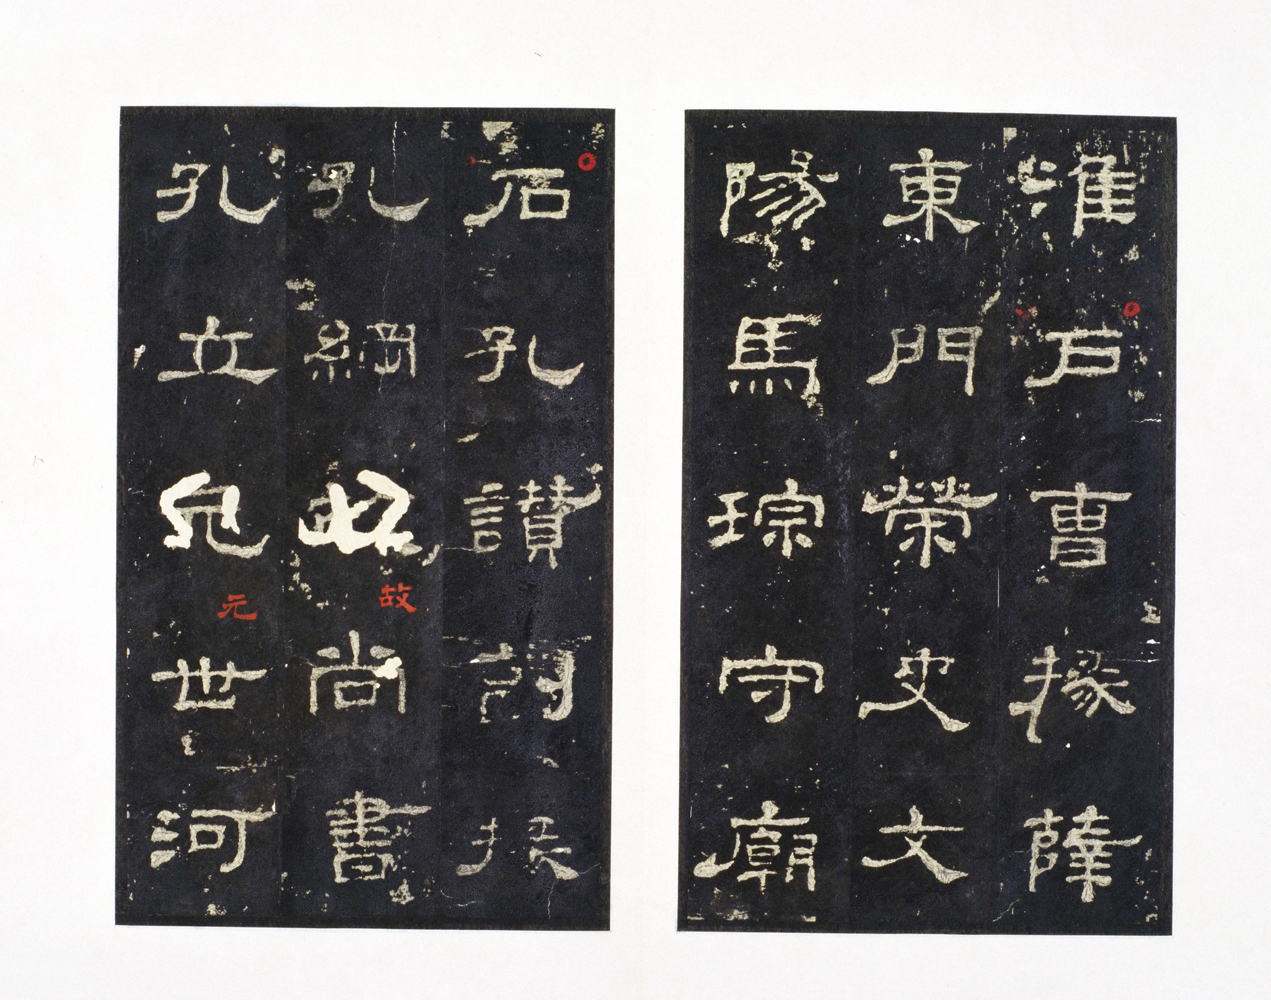 淮戶曹掾薛
東門榮史文
陽馬琮守廟
石孔讚副掾
孔綱故尚書
孔立元世河